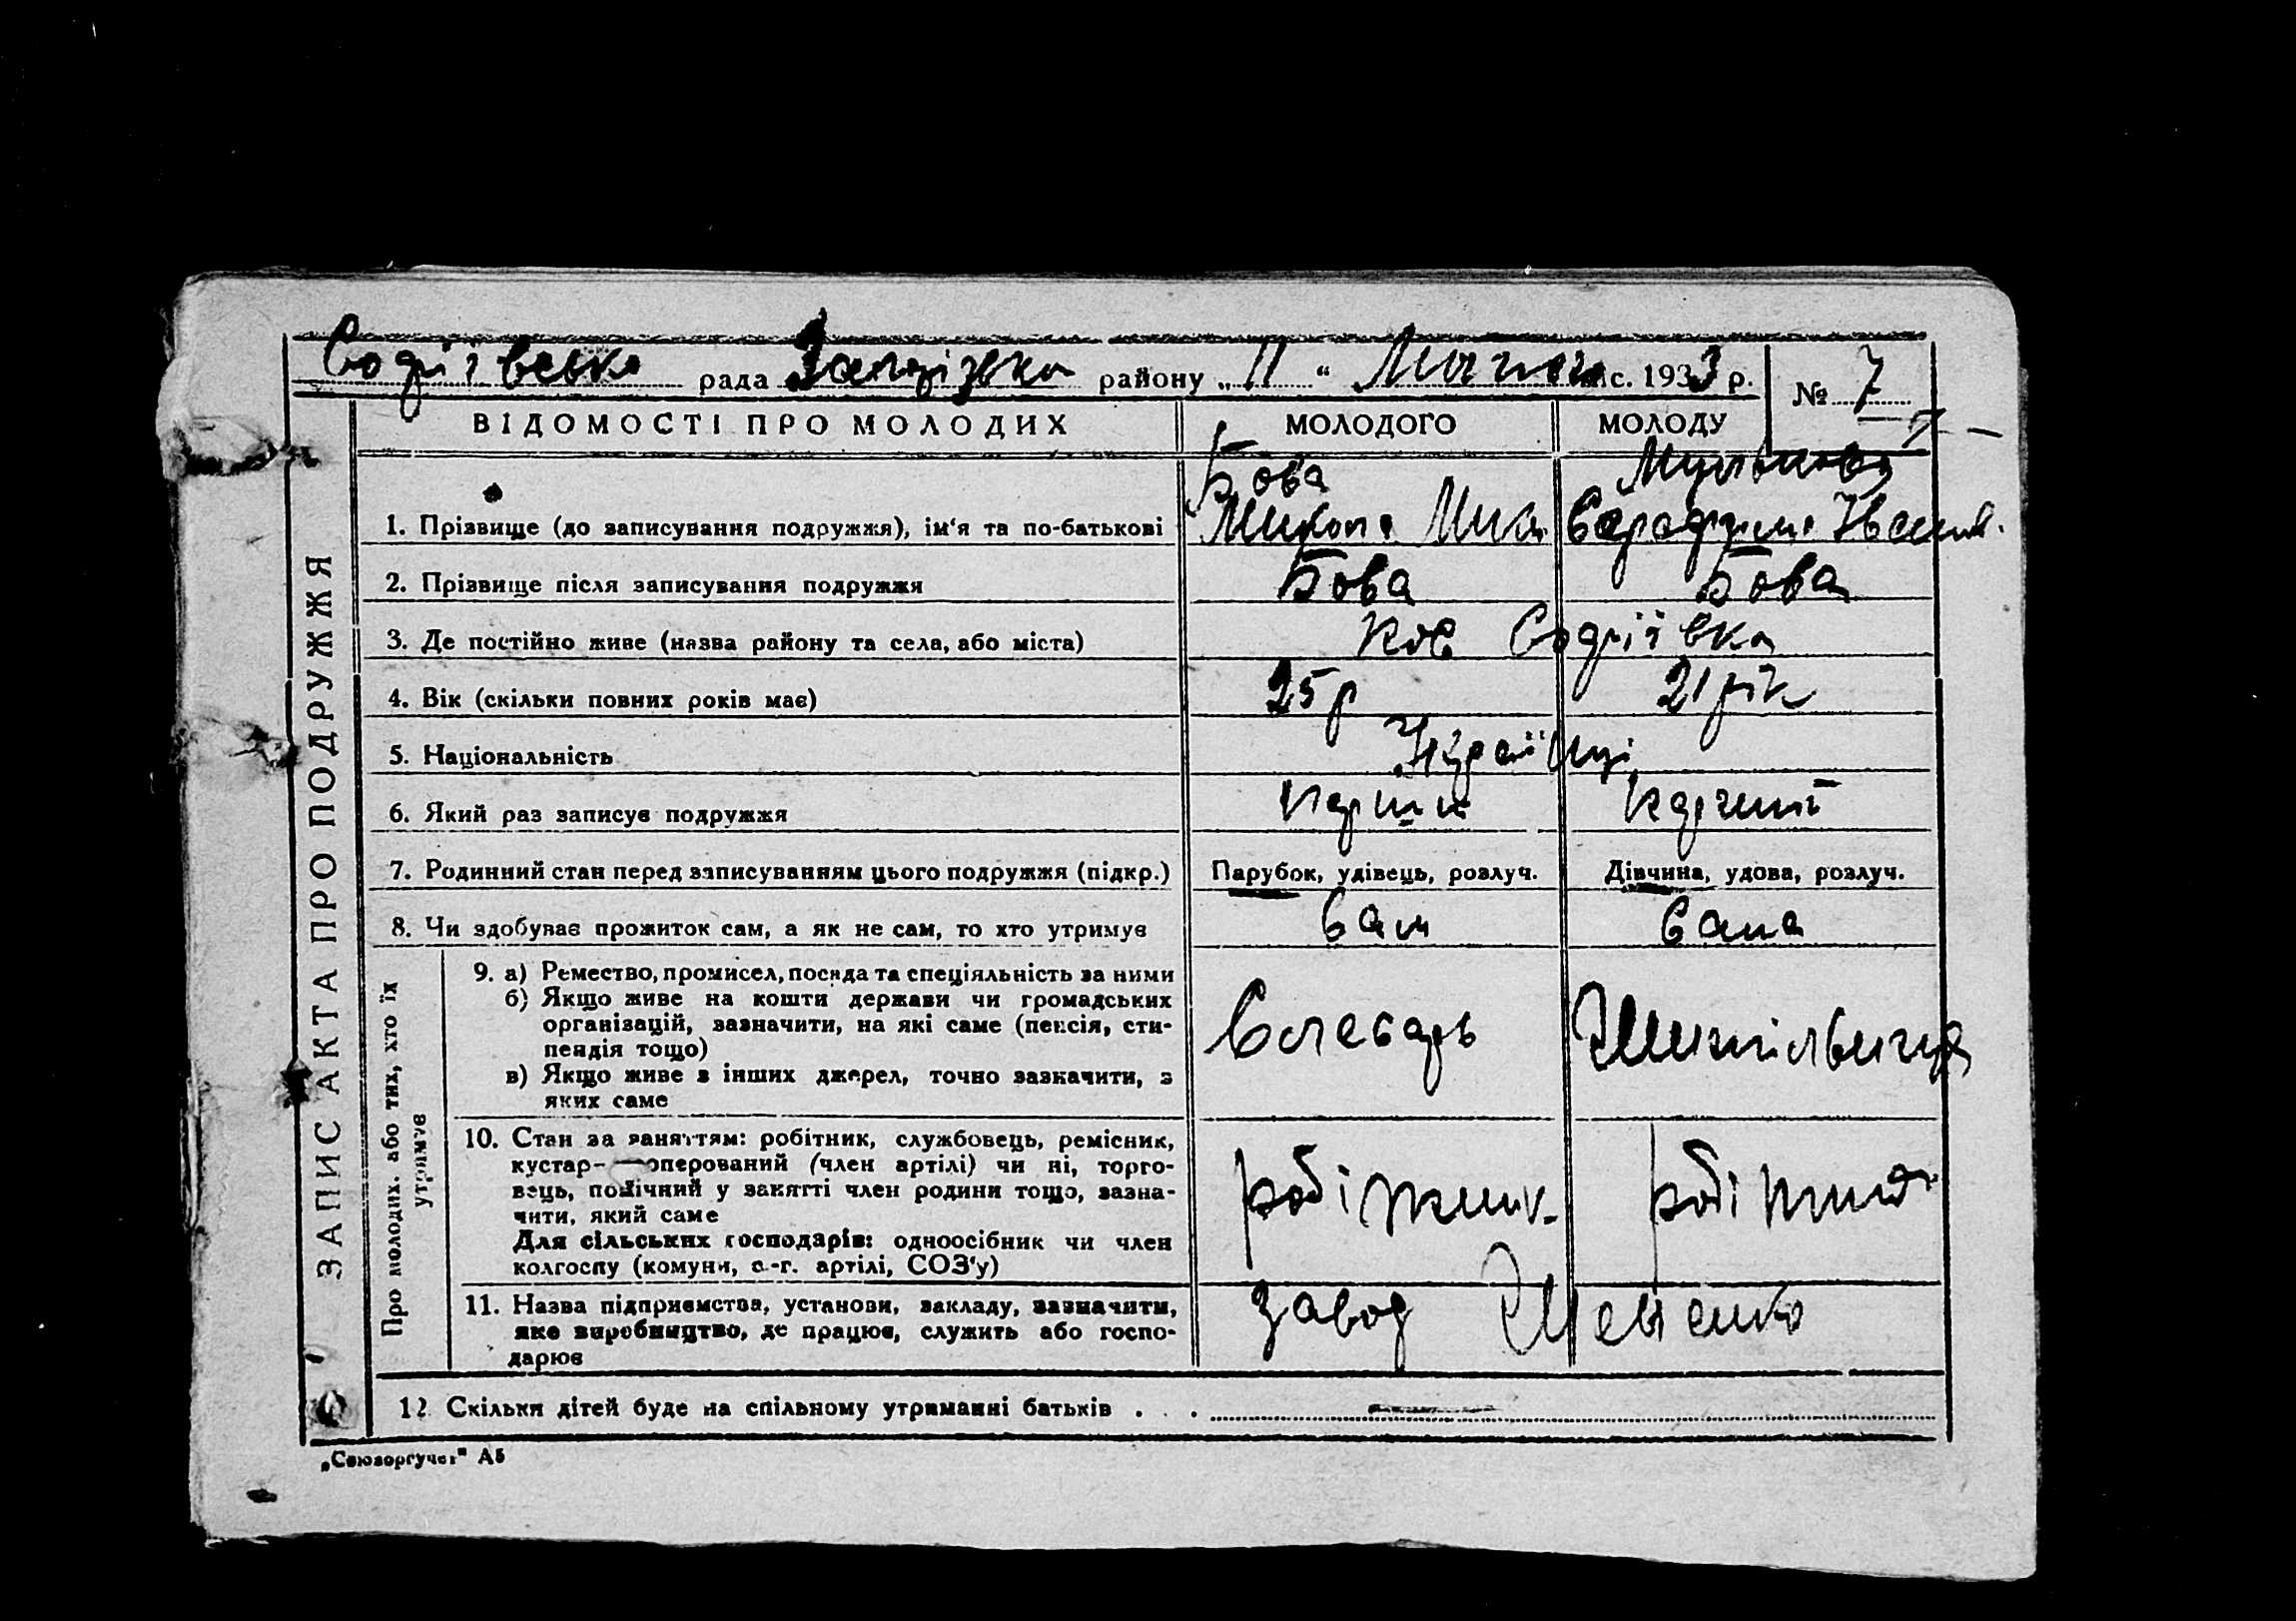 Софіївська рада Запорізька району „ 11 “ міс. 1933 р. № 7
ВІДОМОСТІ ПРО МОЛОДИХ МОЛОДОГО МОЛОДУ
Бова
1. Прізвище (до записування подружжя), ім'я та по-батькові Микола Серафима
2. Прізвище після записування подружжя Бова Бова
3. Де постійно живе (назва району та села, або міста) Софіївка
4. Вік (скільки повних років має) 25 р 21 рік
5. Національність Українці
6. Який раз записує подружжя перший
7. Родинний стан перед записуванням цього подружжя (підкр.) Парубок, удівець, розлуч. Дівчина, удова, розлуч.
8. Чи здобуває прожиток сам, а як не сам, то хто утримує Сам Сама
ЗАПИС АКТА ПРО ПОДРУЖЖЯ
Про молодих. або тих, хто їх
утримує
9. а) Ремество, промисел, посада та спеціяльність за ними
б) Якщо живе на кошти держави чи громадських
організацій, зазначити, на які саме (пенсія, сти-
пендія тощо)
в) Якщо живе з інших джерел, точно зазначити, з
яких саме
Слесарь
10. Стан за заняттям: робітник, службовець, ремісник,
кустар- (член артілі) чи ні, торго-
вець, помічний у занятті член родини тощо, зазна-
чити, який саме
Для сільських господарів: одноосібник чи член
колгоспу (комуни, с.-г. артілі, СОЗ'у)
робітник
11. Назва підприємства, установи, закладу, зазначити,
яке виробництво, де працює, служить або госпо-
дарює
завод
12 Скільки дітей буде на спільному утриманні батьків . . . —
„Союзоргучет" А5